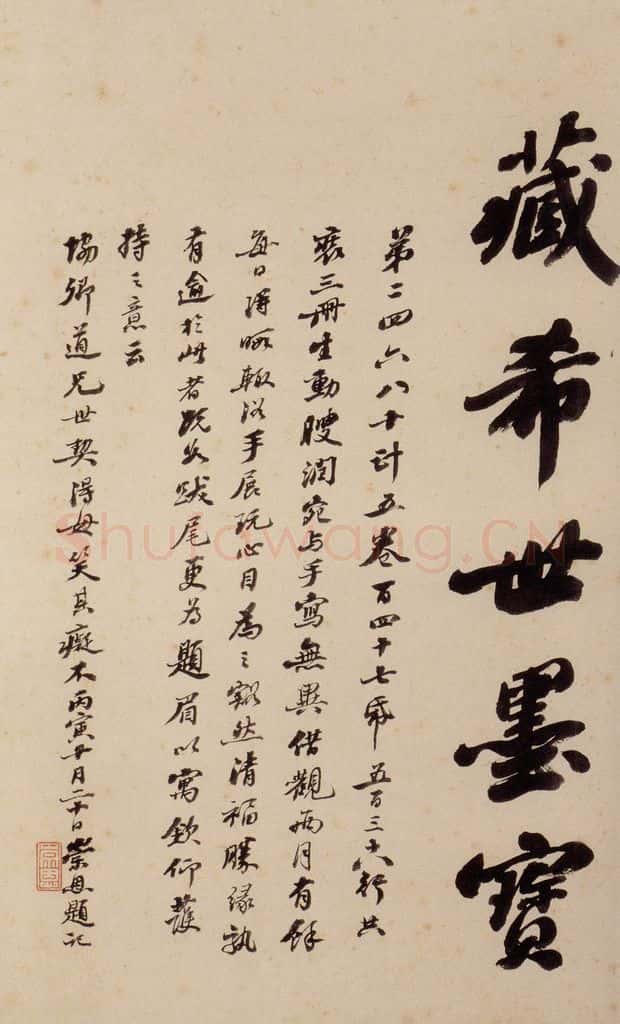 藏希世墨寶
第二四六八十計五卷百四十七帋五百三六行共
裝三冊生動腴潤宛与手寫無異借觀兩月有餘
每日得暇輒浴手展玩心目為之豁然清福勝緣孰
有逾於此者既各跋尾更為題眉以寓欽仰護
持之意云
協卿道兄世契得毋笑其癡不丙寅十月二十日崇恩題記
Shufawang.CN